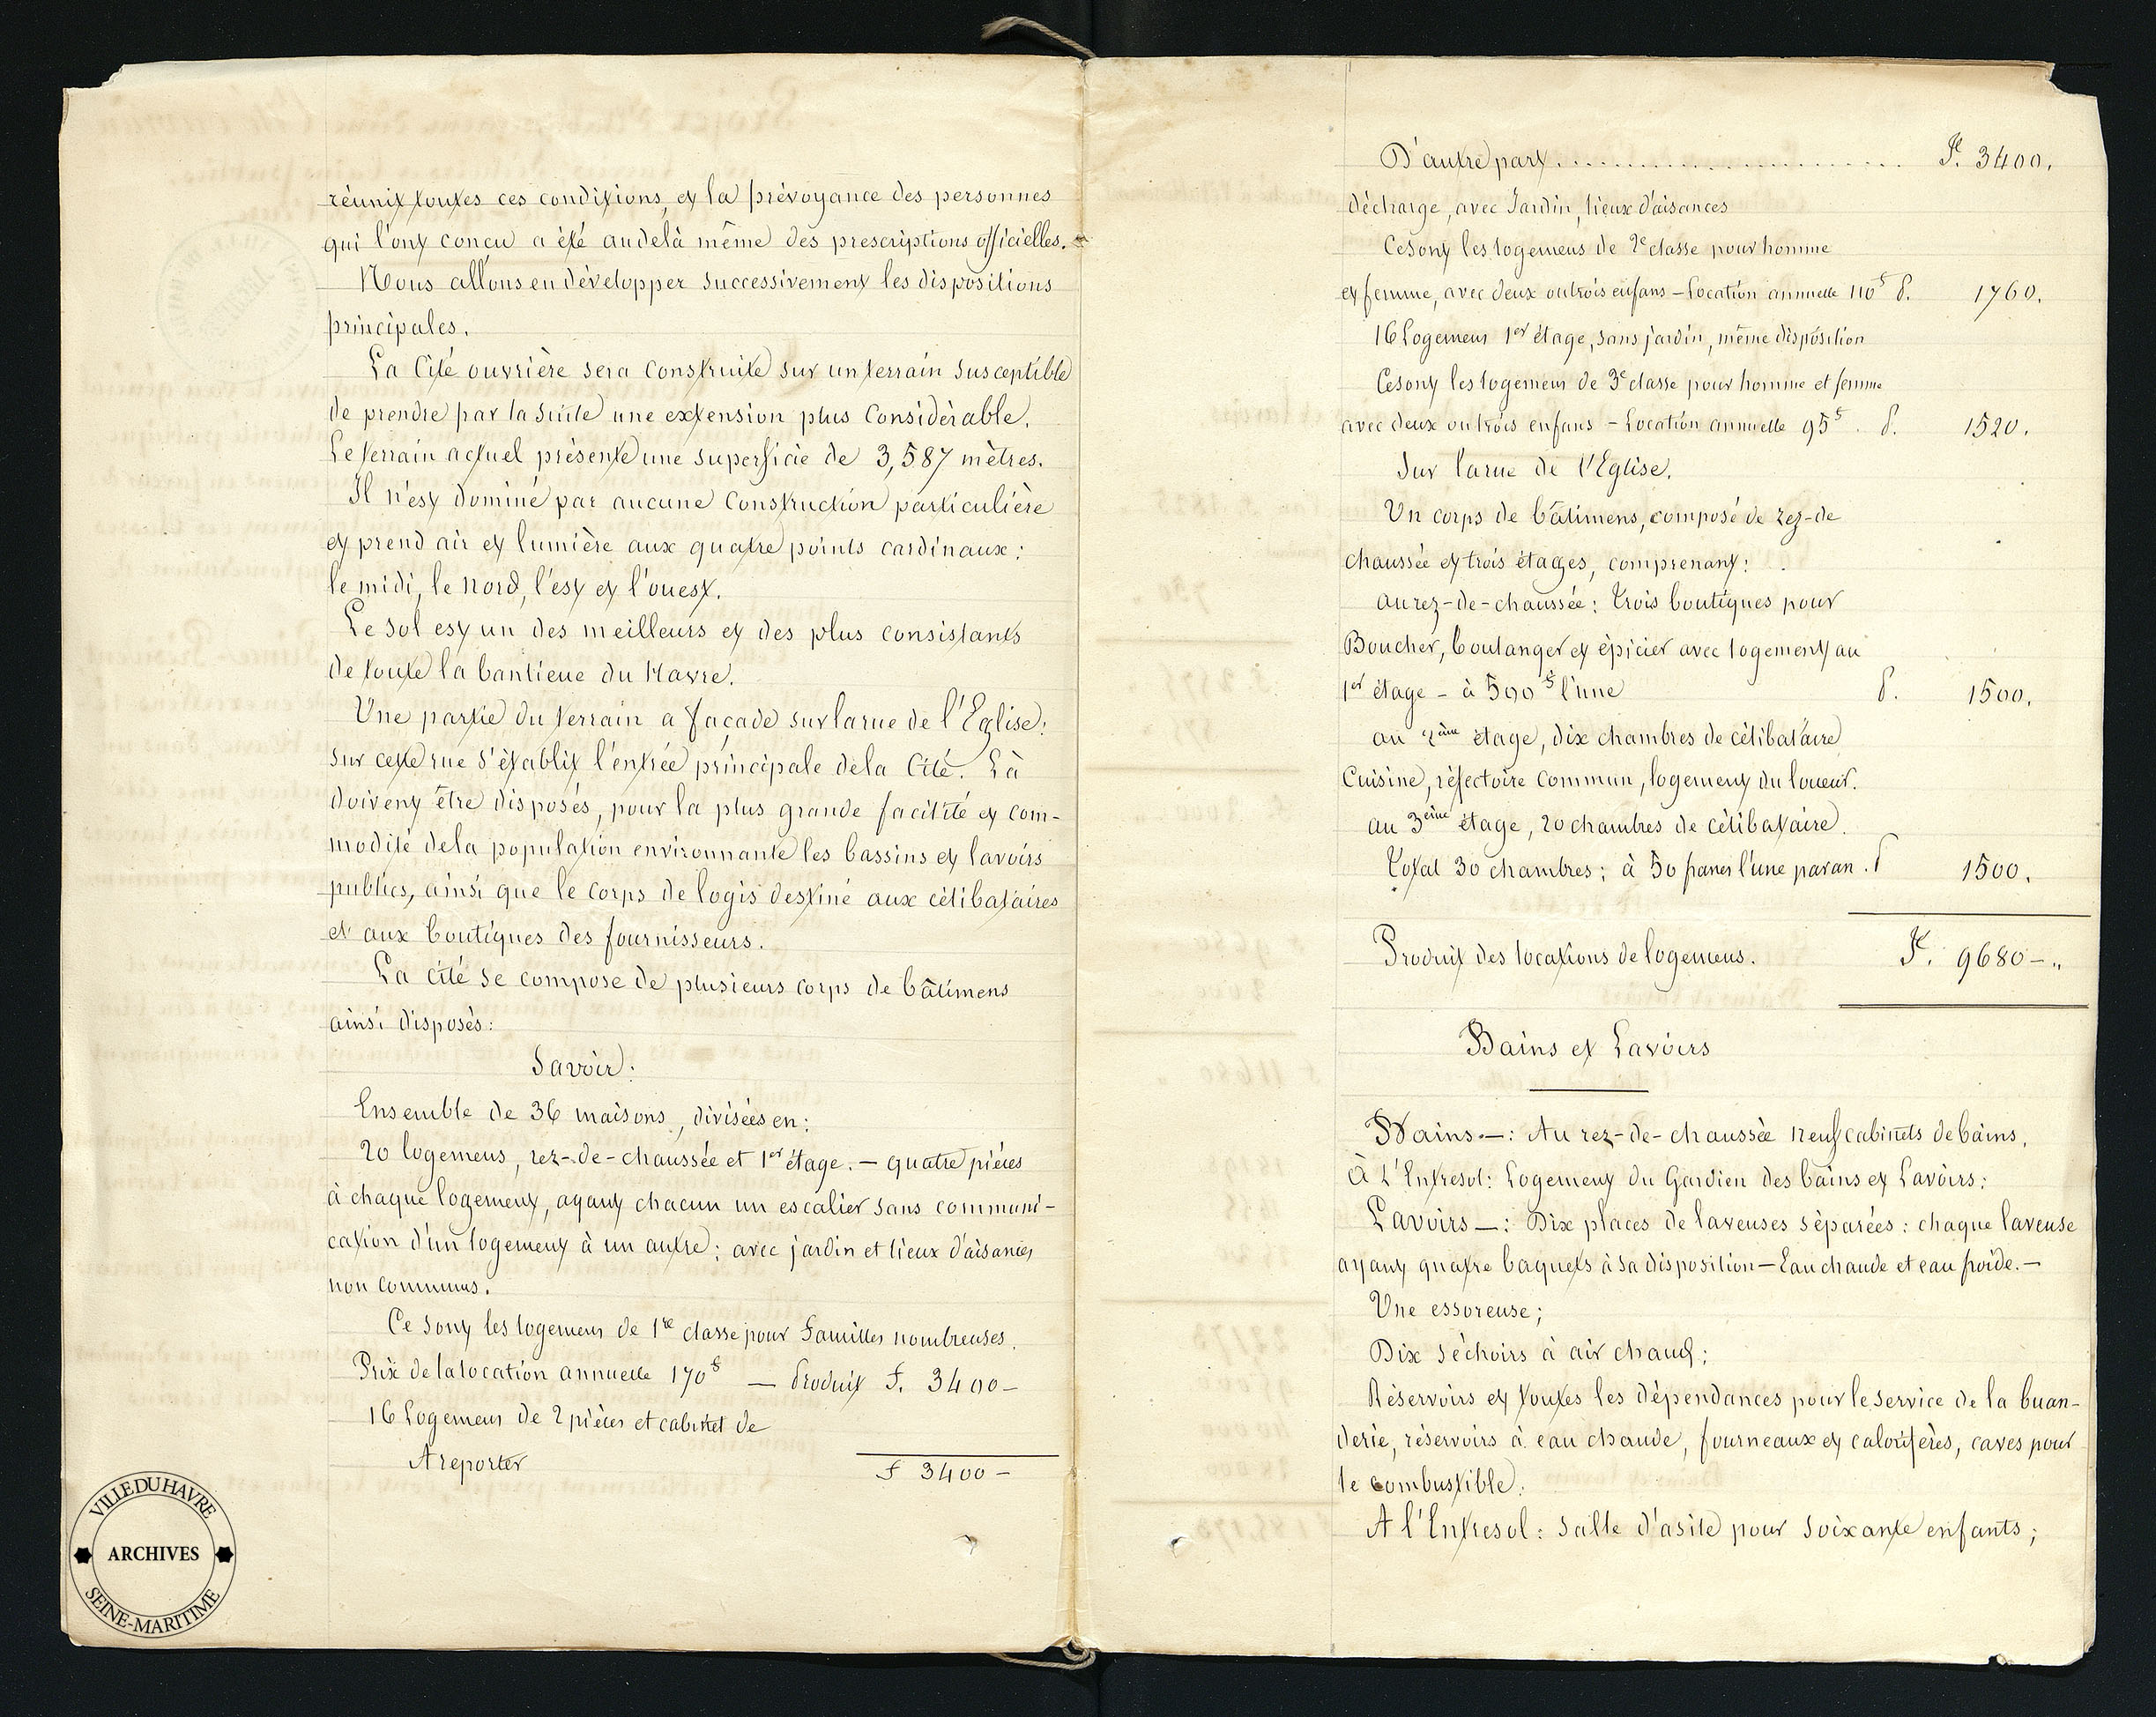 réunit toutes ces conditions, et la prévoyance des personnes
qui l'ont conçu a été audelà même des prescriptions officielles.
Nous allons en développer successivement les dispositions
principales.
La Cité ouvrière sera construite sur un terrain susceptible
de prendre par la suite une extension plus considérable.
Le terrain actuel présente une superficie de 3,587 mètres.
Il n'est dominé par aucune construction particulière
et prend air et lumière aux quatre points cardinaux:
le midi, le nord, l'est et l'ouest.
Le sol est un des meilleurs et des plus consistants
de toute la banlieue du Havre.
Une partie du terrain a façade sur la rue de l'Eglise:
sur cette rue s'établit l'entrée principale de la Cité. Là
doivent être disposés, pour la plus grande facilité et com-
modité de la population environnante les bassins et lavoirs
publics, ainsi que le corps de logis destiné aux célibataires
et aux boutiques des fournisseurs.
La cité se compose de plusieurs corps de bâtimens
ainsi disposés:
Savoir:
Ensemble de 36 maisons, divisées en:
20 logemens, rez-de-chaussée et 1er étage. — quatre pièces
à chaque logement, ayant chacun un escalier sans communi-
cation d'un logement à un autre; avec jardin et lieux d'aisances
non communs.
Ce sont les logemens de 1re classe pour familles nombreuses.
Prix de la location annuelle 170f — Produit F. 3400 —
16 Logemens de 2 pièces et cabinet de
A reporter F 3400 —
VILLE DU HAVRE
ARCHIVES
SEINE-MARITIME
D'autre part........................ F. 3400.
décharge, avec Jardin, lieux d'aisances
Ce sont les logemens de 2e classe pour homme
et femme, avec deux ou trois enfans — Location annuelle 110f P. 1760.
16 Logemens 1er étage, sans jardin, même disposition
Ce sont les logemens de 3e classe pour homme et femme
avec deux ou trois enfans — Location annuelle 95f. P. 1520.
Sur la rue de l'Eglise.
Un corps de bâtimens, composé de rez-de
chaussée et trois étages, comprenant:
au rez-de-chaussée: trois boutiques pour
Boucher, boulanger et épicier avec logement au
1er étage — à 500f l'une P. 1500.
au 2ème étage, dix chambres de célibataire
Cuisine, réfectoire commun, logement du loueur.
au 3eme étage, 20 chambres de célibataire.
Total 30 chambres; à 50 francs l'une par an. P 1500.
Produit des locations de logemens. F. 9680 — "
Bains et Lavoirs
Bains. —: Au rez-de-chaussée neuf cabinets de bains.
À l'Entresol: Logement du Gardien des bains et Lavoirs;
Lavoirs —: Dix places de laveuses séparées: chaque laveuse
ayant quatre baquets à sa disposition — Eau chaude et eau froide. —
Une essoreuse;
Dix séchoirs à air chaud;
Réservoirs et toutes les dépendances pour le service de la buan-
derie, réservoirs à eau chaude, fourneaux et calorifères, caves pour
le combustible.
A l'Entresol: salle d'asile pour soixante enfants;